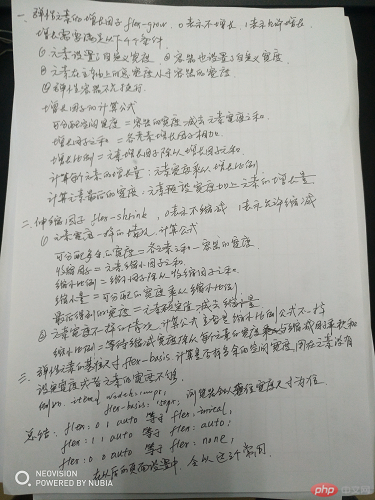 一. 弹性元素的增长因子 flex-grow, 0表示不增长, 1表示允许增长
增长需要满足以下4个条件
① 元素设置了自定义宽度, ② 容器也设置了自定义宽度
③ 元素在主轴上的总宽度小于容器的宽度
④ 弹性容器不允许换行
增长因子的计算公式
可分配的宽度 = 容器的宽度减去元素宽度之和
增长因子之和 = 各元素增长因子相加
增长比例 = 元素增长因子除以增长因子之和
计算每个元素的增长量: 元素宽度乘以增长比例
计算元素最后的宽度: 元素宽度加上元素的增长量
二. 伸缩因子 flex-shrink, 0表示不缩减 1表示允许缩减
① 元素宽度一样的情况, 计算公式
可分配多余的宽度 = 各元素之和 - 容器的宽度
缩小因子 = 元素缩小因子之和
缩小比例 = 缩小因子除以缩小因子之和
缩小量 = 可分配的宽度乘以缩小比例
最后得到的宽度 = 元素宽度减去缩小量
② 元素宽度不一样的情况, 计算公式 缩小比例公式不一样
缩小比例 = 等待缩减宽度除以每个元素的宽度与缩减因子乘积和
三. 弹性元素的基准尺寸 flex-basis, 计算是否有多余的空间宽度, 用在元素没有
设置宽度或者元素的宽度不够
flex-basis:
总结: flex: 0 1 auto 等于 flex: initial,
flex: 1 1 auto 等于 flex: auto;
flex: 0 0 auto 等于 flex: none;
在以后的页面设置中, 会以这三个常用
NEOVISION
POWERED BY NUBIA
php 中文网